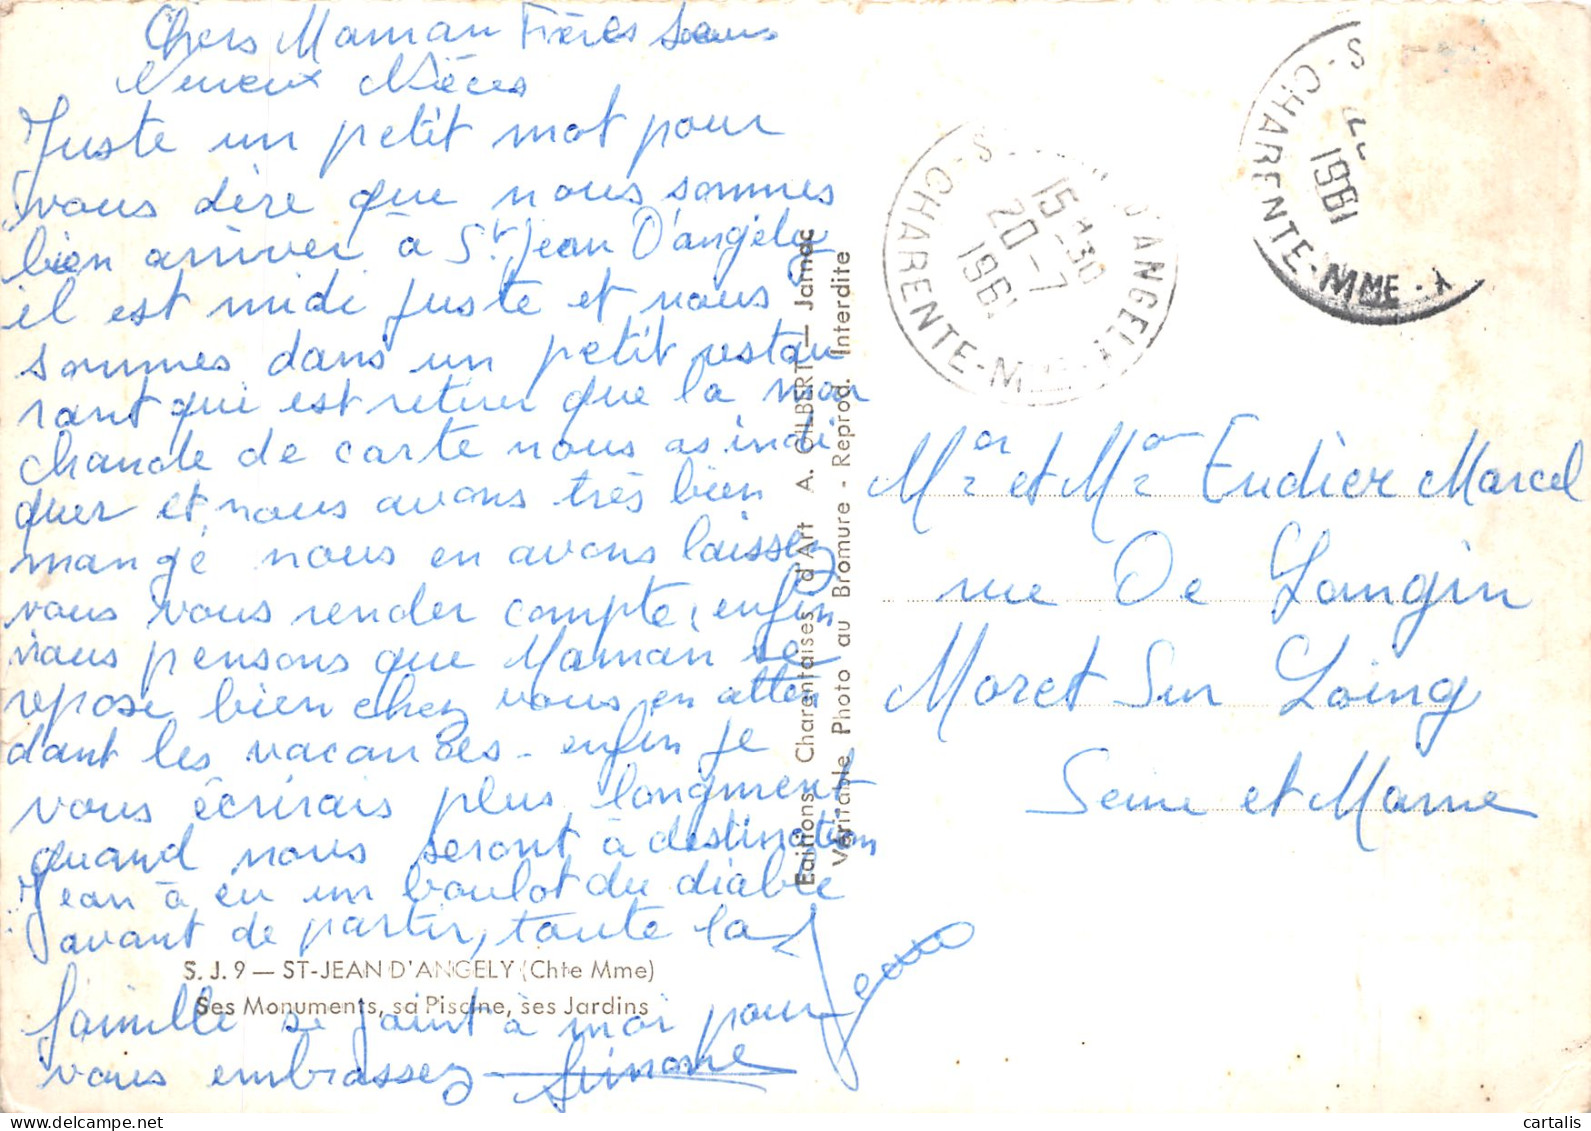 Chers Maman Frères Sœurs
Neveux Nièces
Juste un petit mot pour
vous dire que nous sommes
bien arriver à St Jean D'angély
il est midi juste et nous
sommes dans un petit restau
rant qui est retirer que la mar
chande de carte nous as indi
quer et nous avons très bien
mangé nous en avons laissez
vous vous render compte, enfin
nous pensons que Maman se
repose bien chez vous en atten
dant les vacances - enfin je
vous écrirais plus longment
quand nous seront à destination
Jean à eu un boulot du diable
avant de partir, toute la
famille se joint à moi pour
vous embrassez Simone
Jean
S. J. 9 — ST-JEAN D'ANGELY (Chte Mme)
Ses Monuments, sa Piscine, ses Jardins
Editions Charentaises d'Art A. GILBERT — Jarnac
Véritable Photo au Bromure - Reprod. Interdite
S D'ANGELY
CHARENTE-MME
15 30
20-7
1961
S
CHARENTE-MME
1961
Mr et Me Eudier Marcel
rue De Langin
Moret Sur Loing
Seine et Marne
cartalis